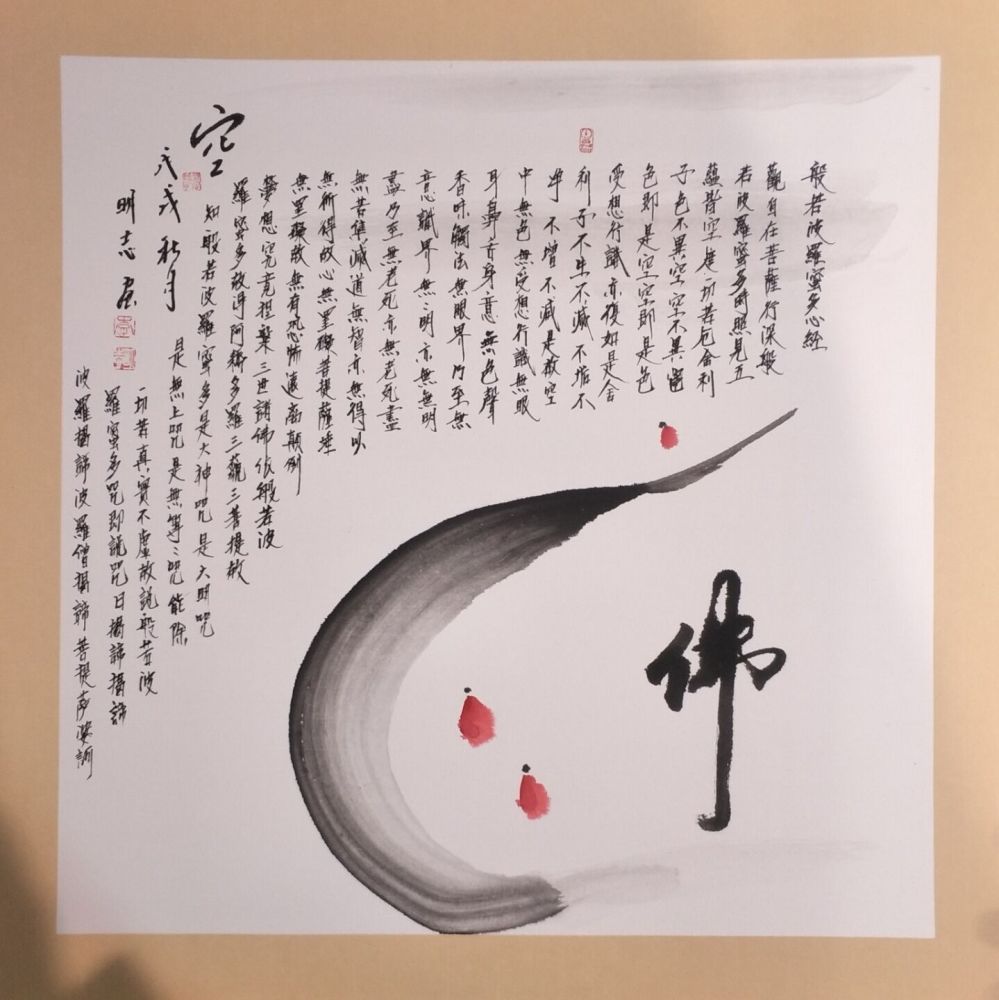 般若波羅蜜多心經
觀自在菩薩行深般
若波羅蜜多時照見五
蘊皆空度一切苦厄舍利
子色不異空空不異色
色即是空空即是色
受想行識亦復如是舍
利子不生不滅不垢不
淨不增不減是故空
中無色無受想行識無眼
耳鼻舌身意無色聲
香味觸法無眼界乃至無
意識界無〻明亦無無明
盡乃至無老死亦無老死盡
無苦集滅道無智亦無得以
無所得故心無罣礙菩提薩埵
無罣礙故無有恐怖遠離顛倒
夢想究竟涅槃三世諸佛依般若波
羅蜜多故得阿耨多羅三藐三菩提故
知般若波羅蜜多是大神咒是大明咒
是無上咒是無等〻咒能除
一切苦真實不虛故說般若波
羅蜜多咒即說咒曰揭諦揭諦
波羅揭諦波羅僧揭諦菩提薩婆訶
空
戊戌秋月
明志
佛